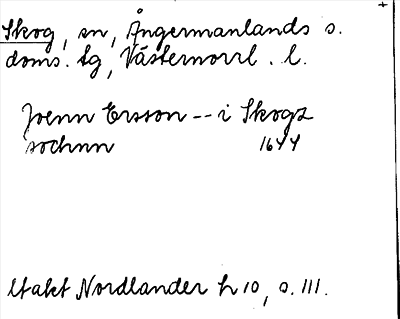 Skog, sn, Ångermanlands s.
doms. sg, Västernorrl. l.
Joenn Ersson -- i Skogz
sochnn 1644
Utakt Nordlander h 10, s. 111.